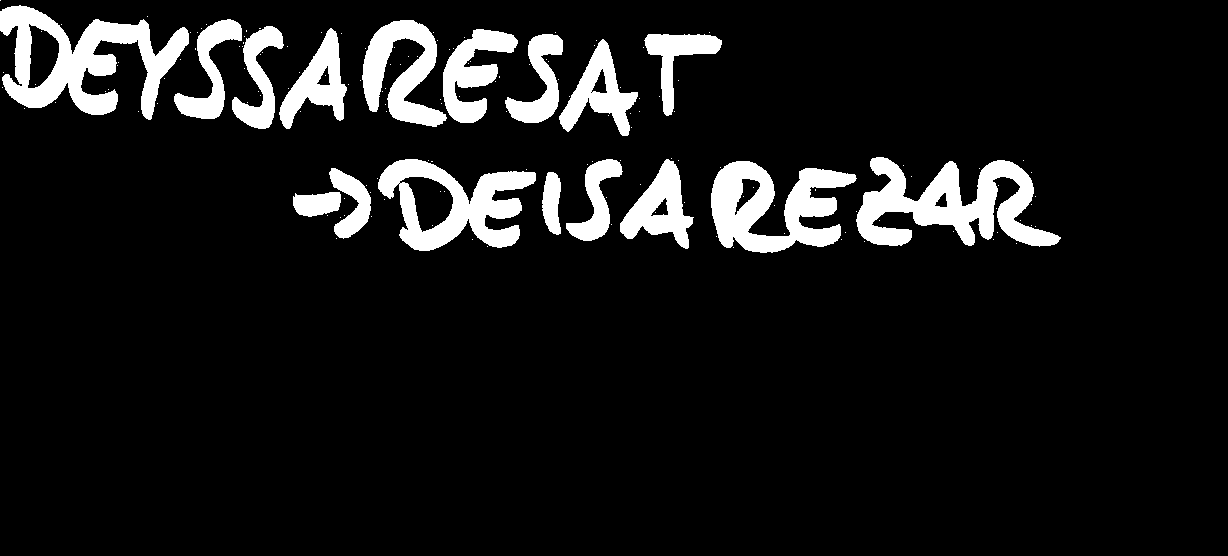 DEYSSARESAT
→DEISAREZAR